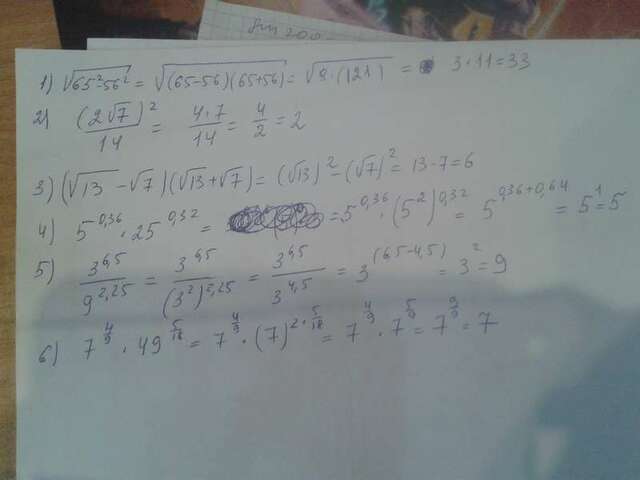 1) √65²-56² = √(65-56)(65+56) = √9·(121) = 3·11=33
2) (2√7)²/14 = 4·7/14 = 4/2 = 2
3) (√13 - √7)(√13+√7) = (√13)² - (√7)² = 13-7=6
4) 5^0,36 · 25^0,32 = = 5^0,36 · (5²)^0,32 = 5^0,36+0,64 = 5^1 = 5
5) 3^6,5/9^2,25 = 3^6,5/(3²)^2,25 = 3^6,5/3^4,5 = 3^(6,5-4,5) = 3² = 9
6) 7^4/9 · 49^5/18 = 7^4/9 · (7)^2·5/18 = 7^4/9 · 7^5/9 = 7^9/9 = 7